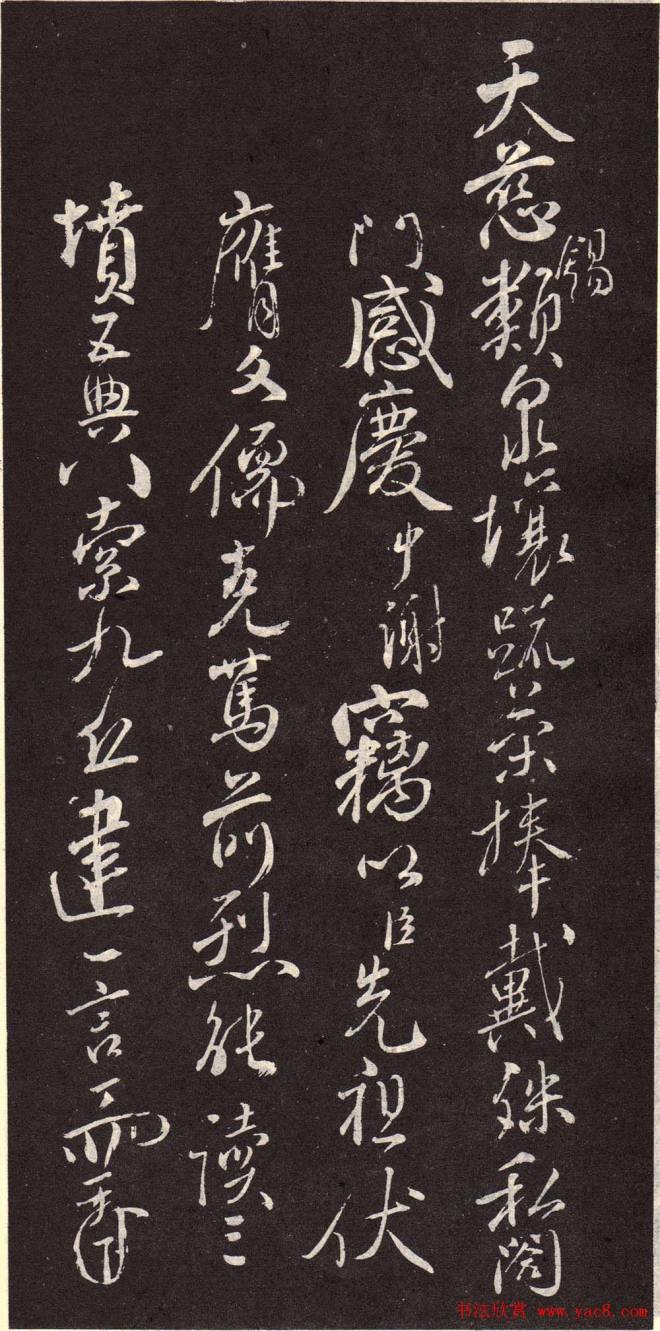 天慈錫類泉壤疏榮捧戴殊私闔
門感慶中謝竊以臣先祖伏
膺文儒克篤前烈能讀三
墳五典八索九丘建一言
书法欣赏 www.yac8.com